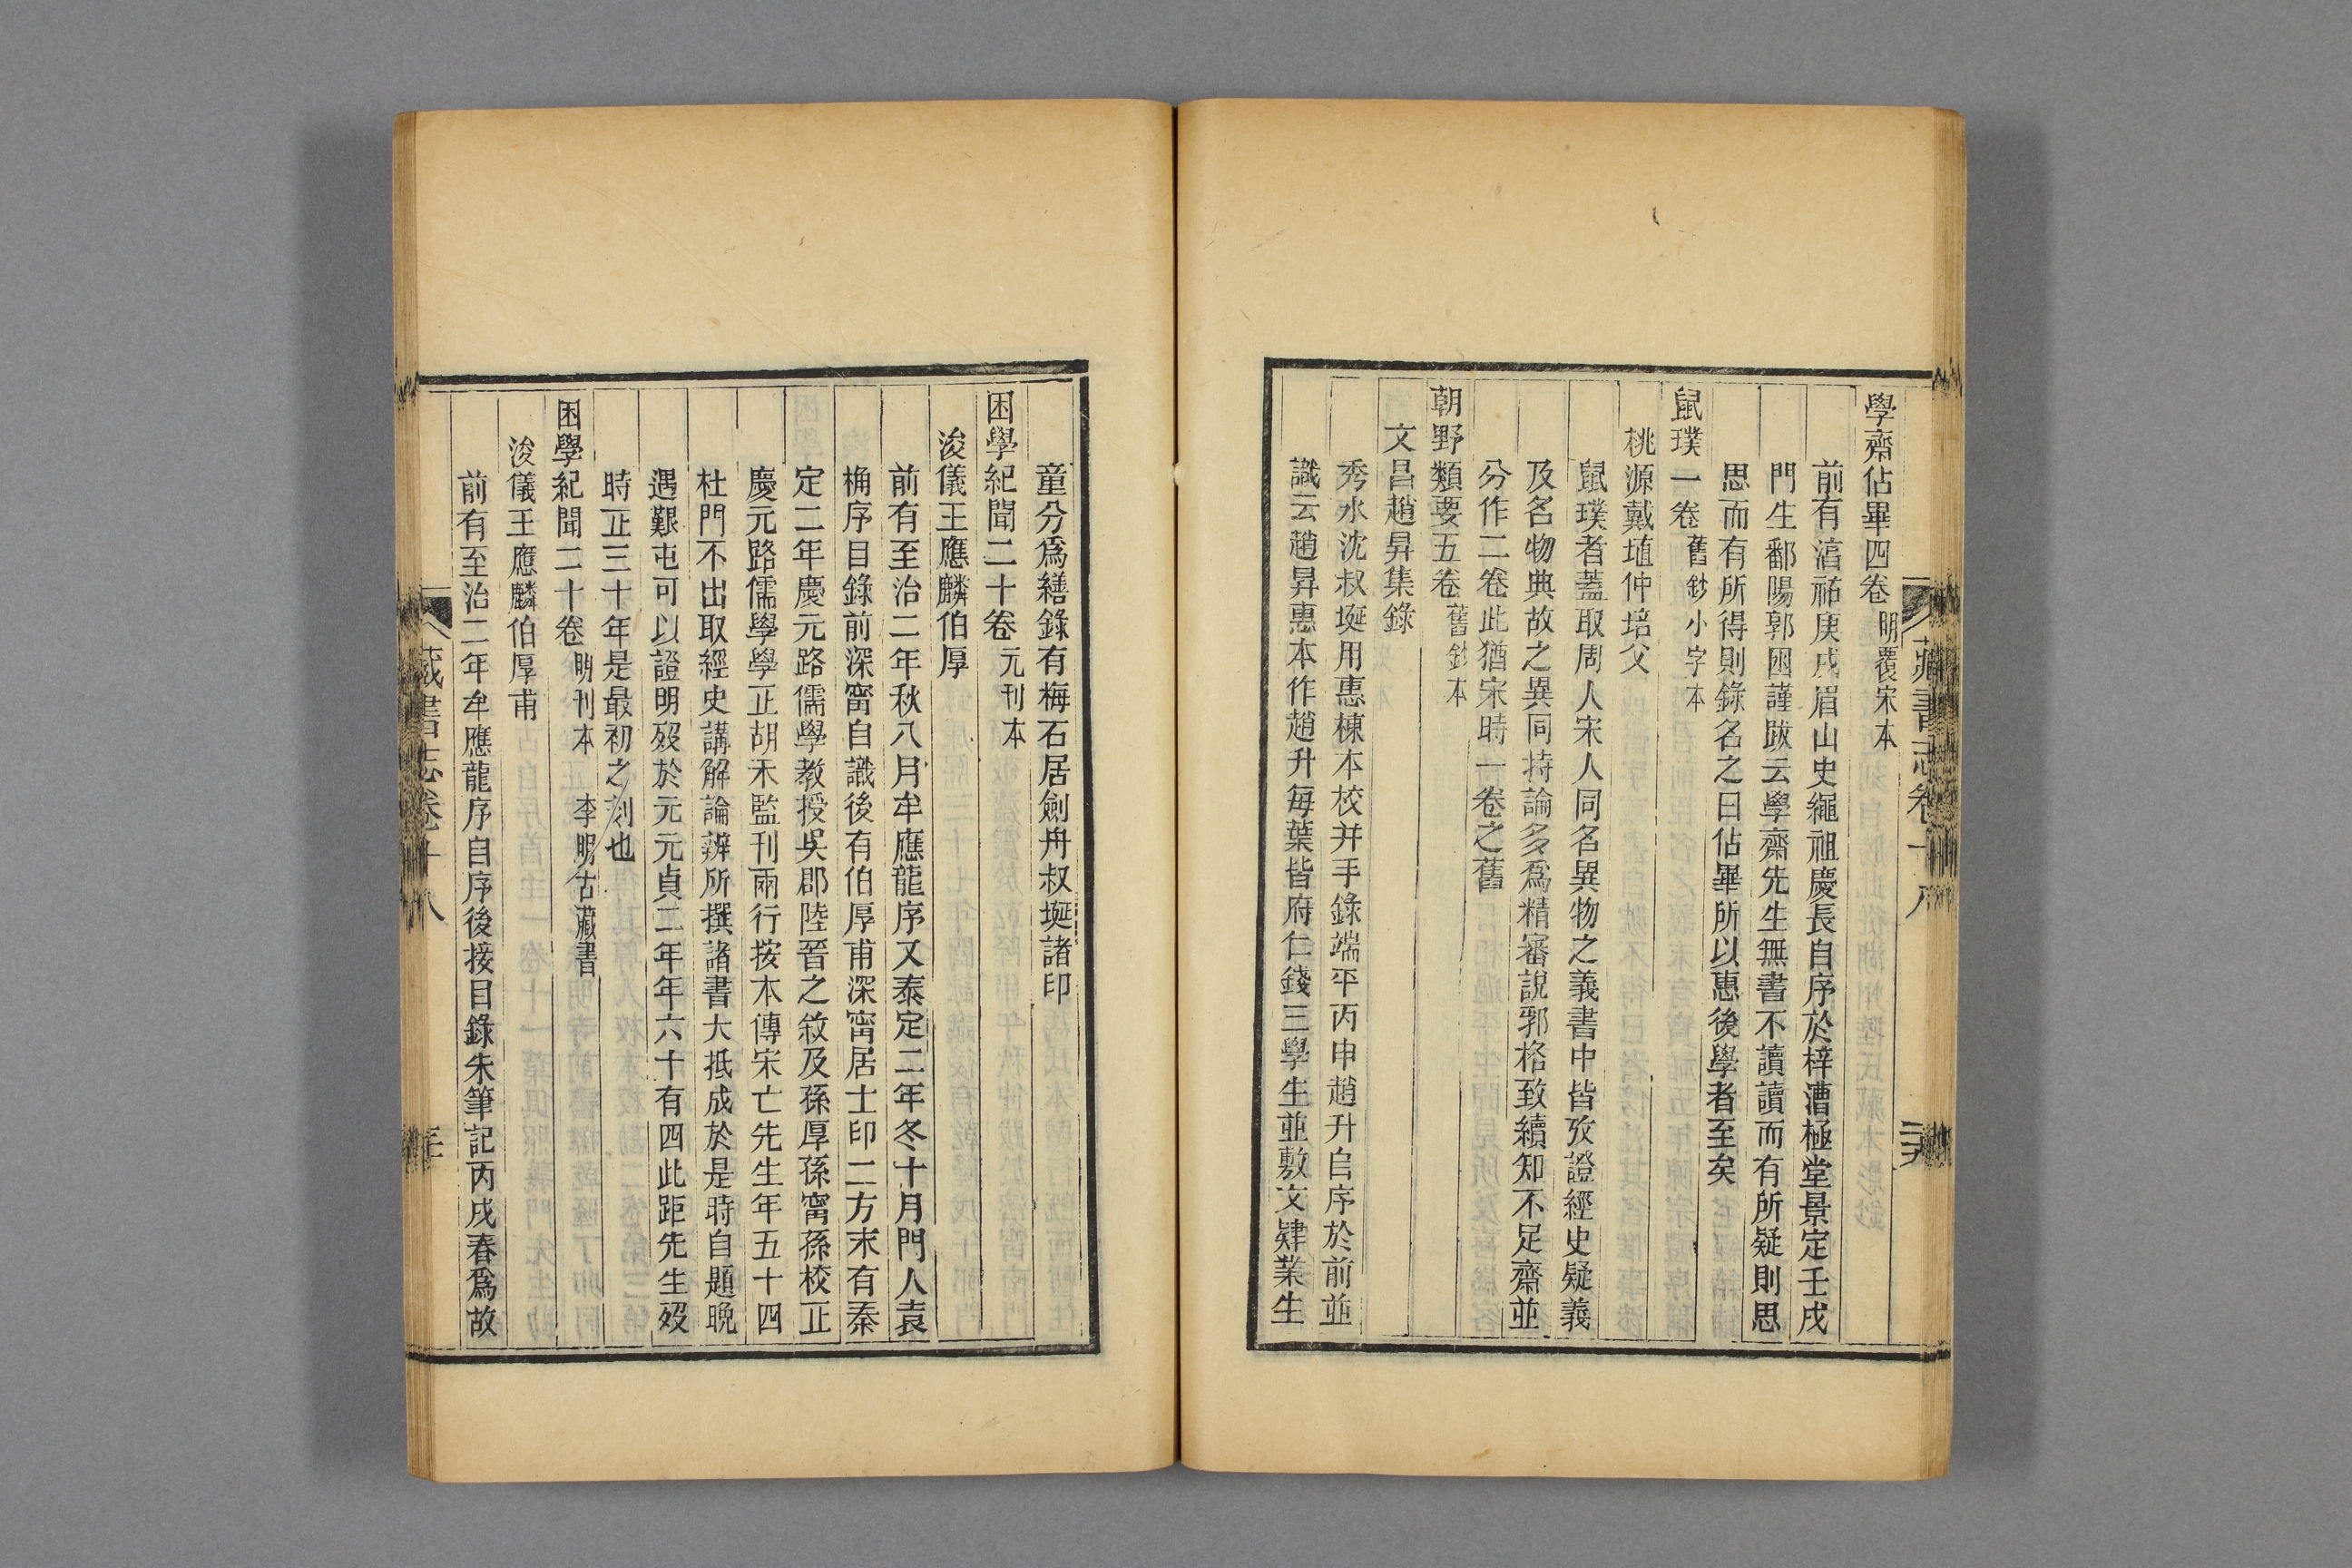 學齋佔畢四卷 明覆宋本
前有淳祐庚戌眉山史繩祖慶長自序於梓漕極堂景定壬戌
門生鄱陽郭囦謹跋云學齋先生無書不讀讀而有所疑則思
思而有所得則錄名之曰佔畢所以惠後學者至矣
鼠璞一卷 舊鈔小字本
桃源戴埴仲培父
鼠璞者蓋取周人宋人同名異物之義書中皆攷證經史疑義
及名物典故之異同持論多爲精審說郛格致續知不足齋並
分作二卷此猶宋時一卷之舊
朝野類要五卷 舊鈔本
文昌趙昇集錄
秀水沈叔埏用惠棟本校并手錄端平丙申趙升自序於前並
識云趙昇惠本作趙升每葉皆府仁錢三學生並敷文肄業生
童分爲繕錄有梅石居劍舟叔埏諸印
困學紀聞二十卷 元刊本
浚儀王應麟伯厚
前有至治二年秋八月牟應龍序又泰定二年冬十月門人袁
桷序目錄前深寧自識後有伯厚甫深寧居士印二方末有泰
定二年慶元路儒學教授吳郡陸晉之敘及孫厚孫寧孫校正
慶元路儒學學正胡禾監刊兩行按本傳宋亡先生年五十四
杜門不出取經史講解論辨所撰諸書大抵成於是時自題晚
遇艱屯可以證明歿於元元貞二年年六十有四此距先生歿
時正三十年是最初之刻也
困學紀聞二十卷 明刊本 李明古藏書
浚儀王應麟伯厚甫
前有至治二年牟應龍序自序後接目錄朱筆記丙戌春爲故
藏書志卷十八